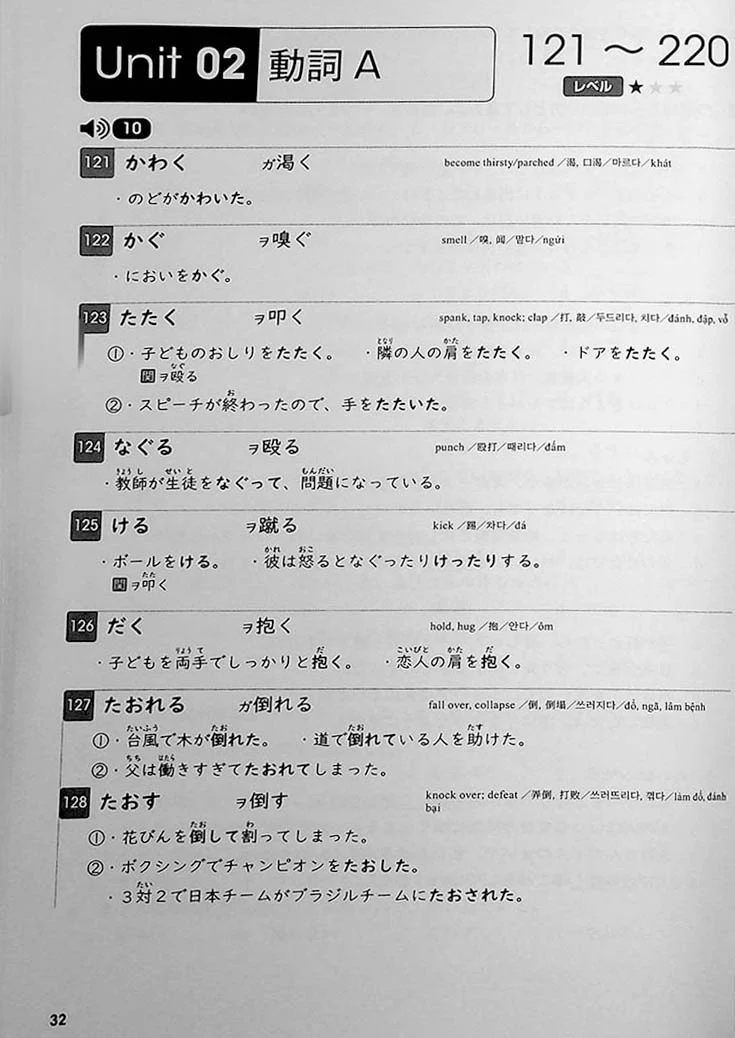 Unit 02 動詞 A 121 ～ 220
レベル ★★★
10
121 かわく ガ渇く become thirsty/parched／渴, 口渴／마르다／khát
・のどがかわいた。
122 かぐ ヲ嗅ぐ smell／嗅, 闻／맡다／ngửi
・においをかぐ。
123 たたく ヲ叩く spank, tap, knock; clap／打, 敲／두드리다, 치다／đánh, đập, vỗ
①・子どものおしりをたたく。 ・隣の人の肩をたたく。 ・ドアをたたく。
関ヲ殴る
②・スピーチが終わったので、手をたたいた。
124 なぐる ヲ殴る punch／殴打／때리다／đấm
・教師が生徒をなぐって、問題になっている。
125 ける ヲ蹴る kick／踢／차다／đá
・ボールをける。 ・彼は怒るとなぐったりけったりする。
関ヲ叩く
126 だく ヲ抱く hold, hug／抱／안다／ôm
・子どもを両手でしっかりと抱く。 ・恋人の肩を抱く。
127 たおれる ガ倒れる fall over, collapse／倒, 倒塌／쓰러지다／đổ, ngã, lâm bệnh
①・台風で木が倒れた。 ・道で倒れている人を助けた。
②・父は働きすぎてたおれてしまった。
128 たおす ヲ倒す knock over; defeat／弄倒, 打败／쓰러뜨리다, 꺾다／làm đổ, đánh
bại
①・花びんを倒して割ってしまった。
②・ボクシングでチャンピオンをたおした。
・３対２で日本チームがブラジルチームにたおされた。
32